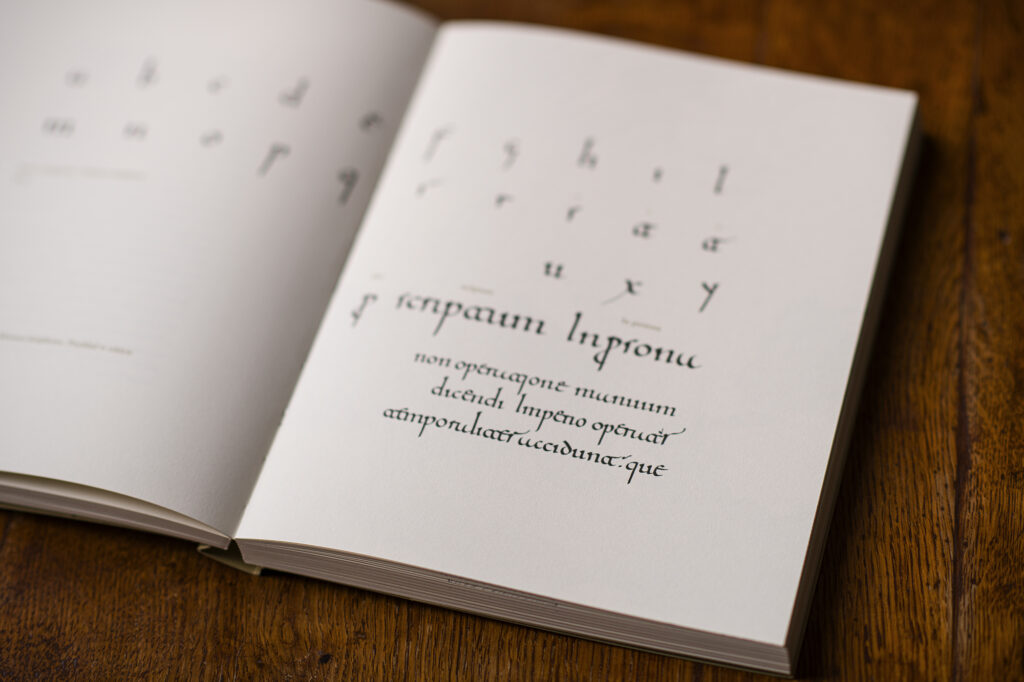 a b c d e
m n o p q
f g h i l
s r r t t
u x y
scriptum In prona
non operatione manuum
dicendi Imperio operatur
temporaliter accidunt. que